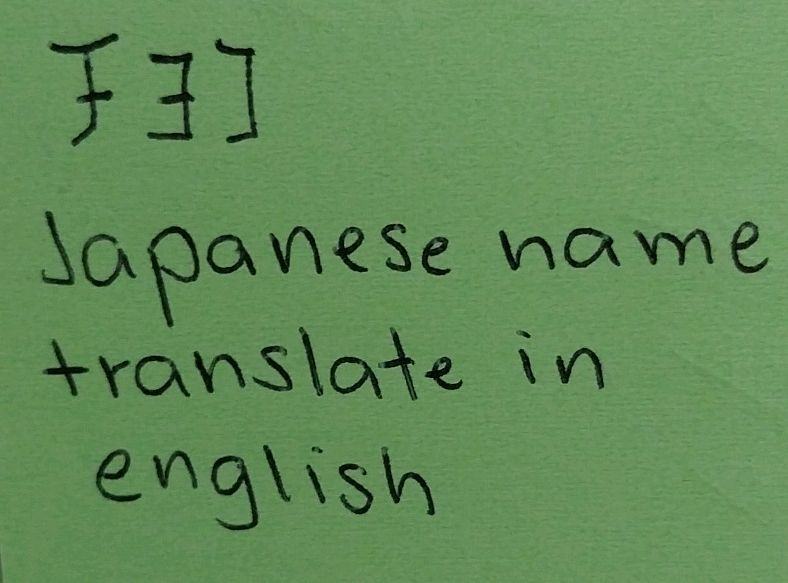 チヨコ
Japanese name
translate in
english